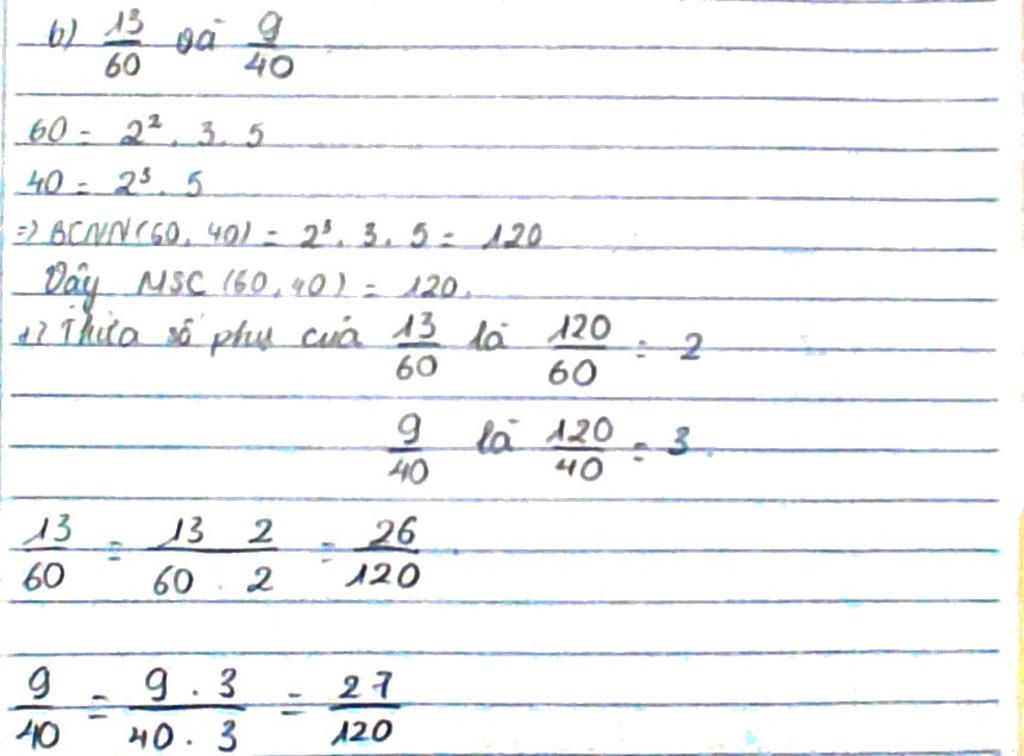 b) 13/60 và 9/40
60 = 2². 3. 5
40 = 2³. 5
=> BCNN(60, 40) = 2³. 3. 5 = 120
Vậy MSC (60, 40) = 120.
Thừa số phụ của 13/60 là 120/60 = 2
9/40 là 120/40 = 3.
13/60 = 13 2/60 . 2 = 26/120
9/40 = 9 . 3/40 . 3 = 27/120